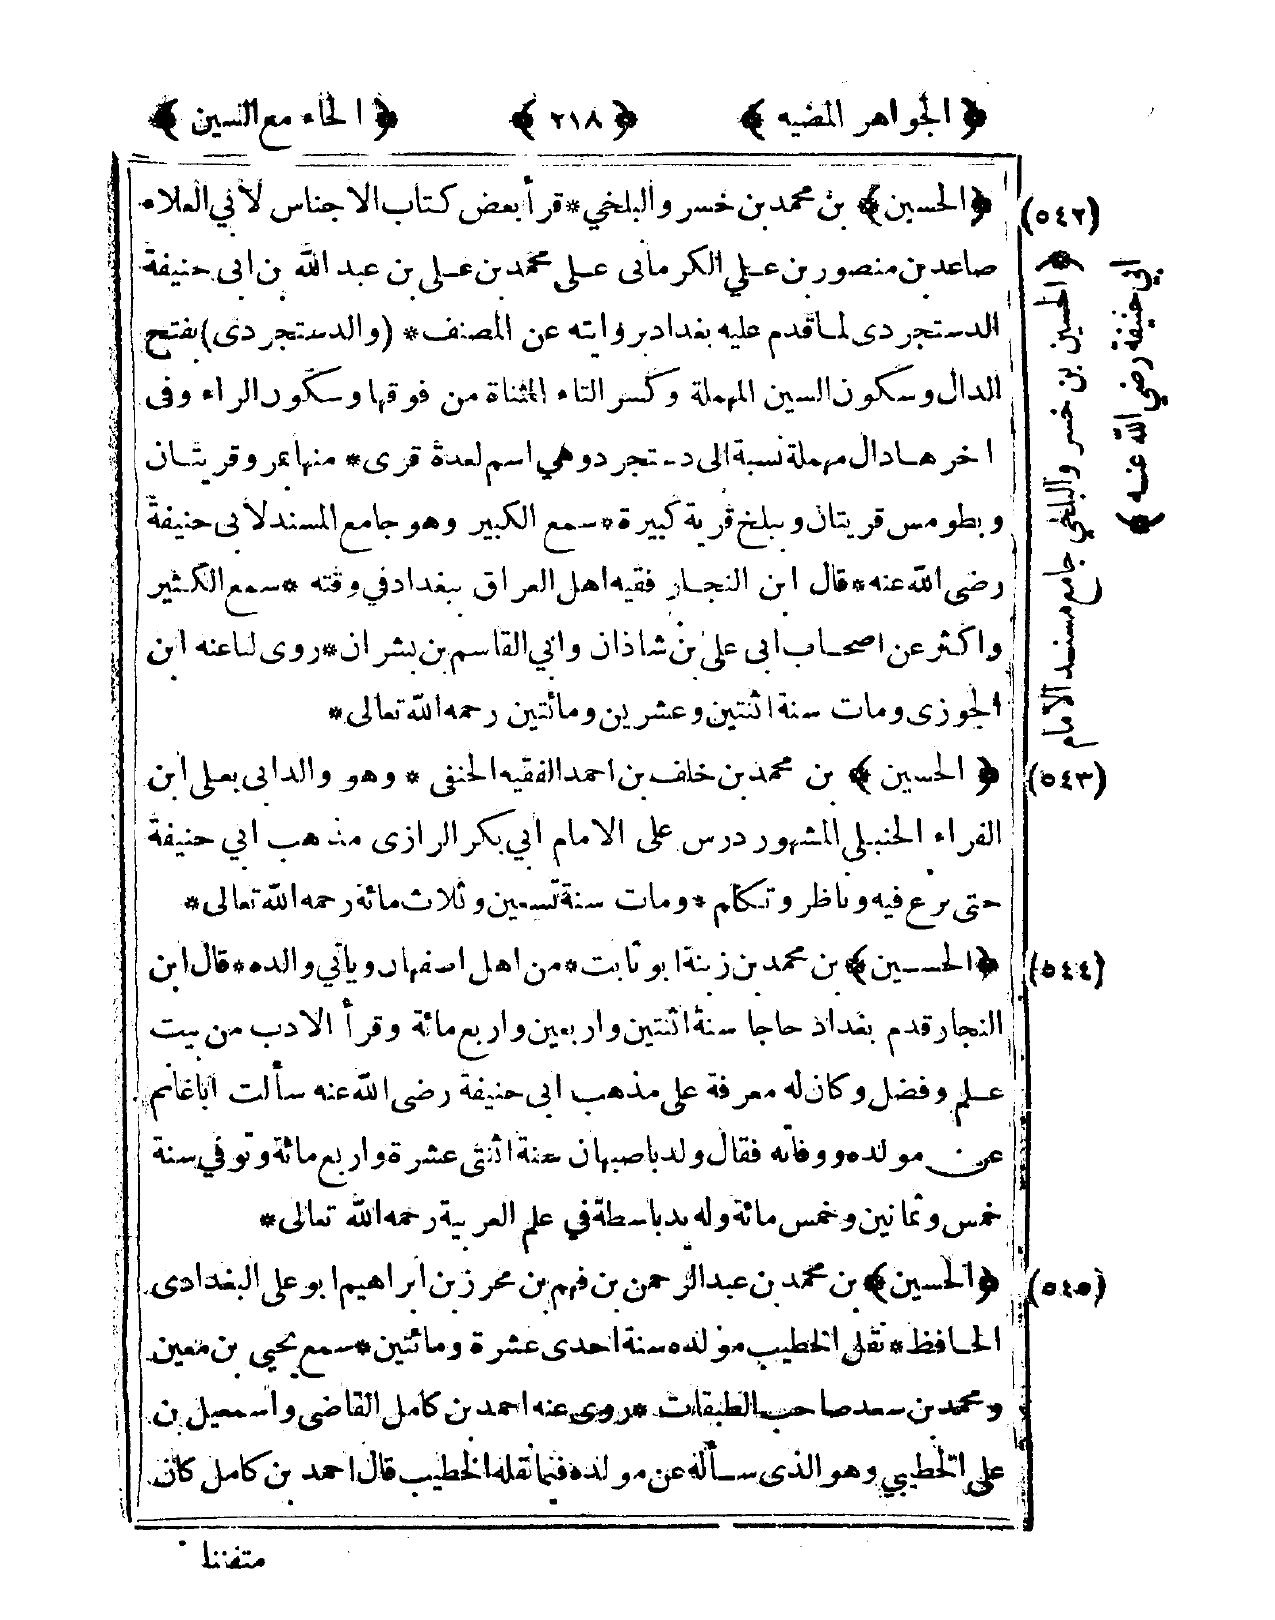 ﴿الجواهر المضيه﴾ ﴿٢١٨﴾ ﴿الحاء مع السين﴾
﴿الحسين﴾ بن محمد بن خسرو البلخي * قرأ بعض كتاب الاجناس لأبي العلاء
صاعد بن منصور بن علي الكرمانى على محمد بن على بن عبد الله بن ابى حنيفة
الدستجردى لما قدم عليه بغداد بروايته عن المصنف * (والدستجردى) بفتح
الدال وسكون السين المهملة وكسر التاء المثناة من فوقها وسكون الراء وفى
اخرها دال مهملة نسبة الى دستجرد وهي اسم لعدة قرى * منها بمرو قريتان
وبطوس قريتان وببلخ قرية كبيرة * سمع الكبير وهو جامع المسند لأبى حنيفة
رضى الله عنه * قال ابن النجار فقيه اهل العراق ببغداد في وقته * سمع الكثير
واكثر عن اصحاب ابى على بن شاذان وابي القاسم بن بشران * روى لنا عنه ابن
الجوزى ومات سنة اثنتين وعشرين ومائتين رحمه الله تعالى *
﴿الحسين﴾ بن محمد بن خلف بن احمد الفقيه الحنفى * وهو والد ابى يعلى ابن
الفراء الحنبلي المشهور درس على الامام ابي بكر الرازى مذهب ابي حنيفة
حتى برع فيه وناظر وتكلم * ومات سنة تسعين وثلاث مائة رحمه الله تعالى *
﴿الحسين﴾ بن محمد بن زينة ابو ثابت * من اهل اصفهان ويأتي والده * قال ابن
النجار قدم بغداد حاجا سنة اثنتين واربعين واربع مائة وقرأ الادب من بيت
علم وفضل وكان له معرفة على مذهب ابى حنيفة رضى الله عنه سألت اباغانم
عن مولده ووفاته فقال ولد باصبهان سنة اثنتى عشرة واربع مائة وتوفي سنة
خمس وثمانين وخمس مائة وله يد باسطة في علم العربية رحمه الله تعالى *
﴿الحسين﴾ بن محمد بن عبد الرحمن بن فهم بن محرز بن ابراهيم ابو على البغدادى
الحافظ * نقل الخطيب مولده سنة احدى عشرة ومائتين * سمع يحيى بن معين
ومحمد بن سعد صاحب الطبقات * روى عنه احمد بن كامل القاضى واسمعيل بن
على الخطبي وهو الذى سأله عن مولده فيما نقله الخطيب قال احمد بن كامل كان
متفننا
(٥٤٢)
﴿الحسين بن خسرو البلخي جامع مسند الامام
ابي حنيفة رضي الله عنه﴾
(٥٤٣)
(٥٤٤)
(٥٤٥)